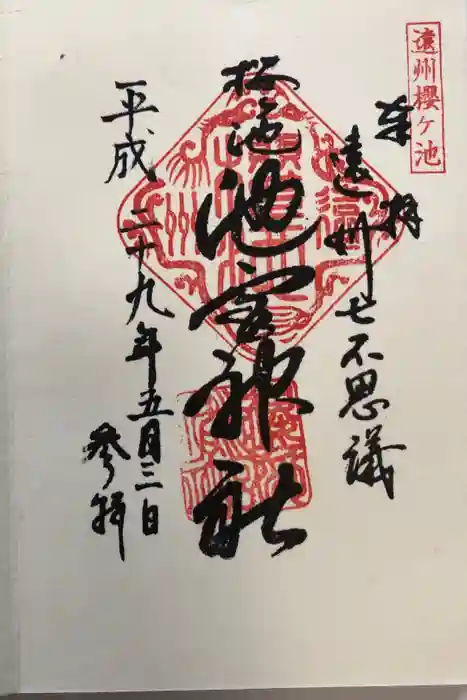 遠州櫻ケ池
奉拝
遠州七不思議
桜池
池宮神社
平成二十九年五月三日
参拝